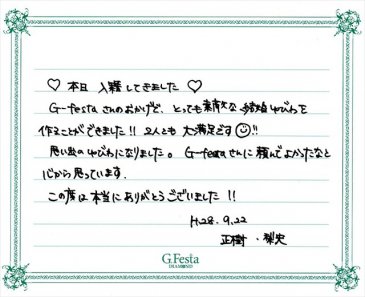 ♡ 本日 入籍してきました ♡
G-festaさんのおかげで、とっても素敵な結婚ゆびわを
作ることができました!! 2人とも大満足です☺!!
思い出のゆびわになりました。G-festaさんに頼んでよかったなと
心から思っています。
この度は本当にありがとうございました!!
H28.9.22
正樹・梨史
G.Festa
DIAMOND